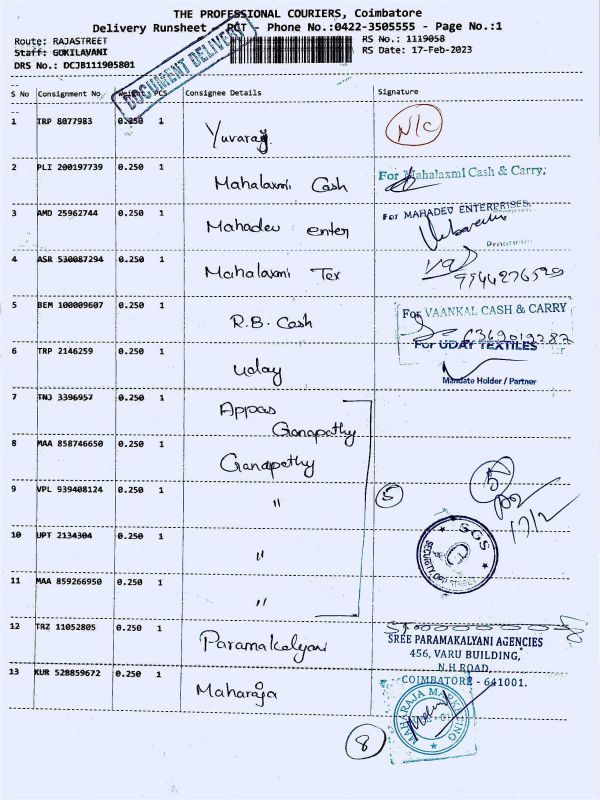 THE PROFESSIONAL COURIERS, Coimbatore
Delivery Runsheet - PCT - Phone No.:0422-3505555 - Page No.:1
Route: RAJASTREET
RS No.: 1119058
Staff: GOKILAVANI
RS Date: 17-Feb-2023
DRS No.: DCJB111905801
DOCUMENT DELIVERY
S No Consignment No Weight PCS Consignee Details Signature
1 TRP 8077983 0.250 1 Yuvaraj N/C
2 PLI 200197739 0.250 1 Mahalaxmi Cash For Mahalaxmi Cash & Carry.
3 AMD 25962744 0.250 1 Mahadev enter For MAHADEV ENTERPRISES,
Proprietor
4 ASR 530087294 0.250 1 Mahalaxmi Tex
5 BEM 100009607 0.250 1 R.B. Cash For VAANKAL CASH & CARRY
6 TRP 2146259 0.250 1 Uday For UDAY TEXTILES
Mandate Holder / Partner
7 TNJ 3396957 0.250 1 Appas
Ganapathy
8 MAA 858746650 0.250 1 Ganapathy
9 VPL 939408124 0.250 1 " 5
5
17/2
10 UPT 2134304 0.250 1 "
SGS
11 MAA 859266950 0.250 1 "
12 TRZ 11052805 0.250 1 Paramakalyani
SREE PARAMAKALYANI AGENCIES
456, VARU BUILDING,
N.H ROAD,
COIMBATORE - 641001.
13 KUR 528859672 0.250 1 Maharaja
MAHARAJA MARKETING
8